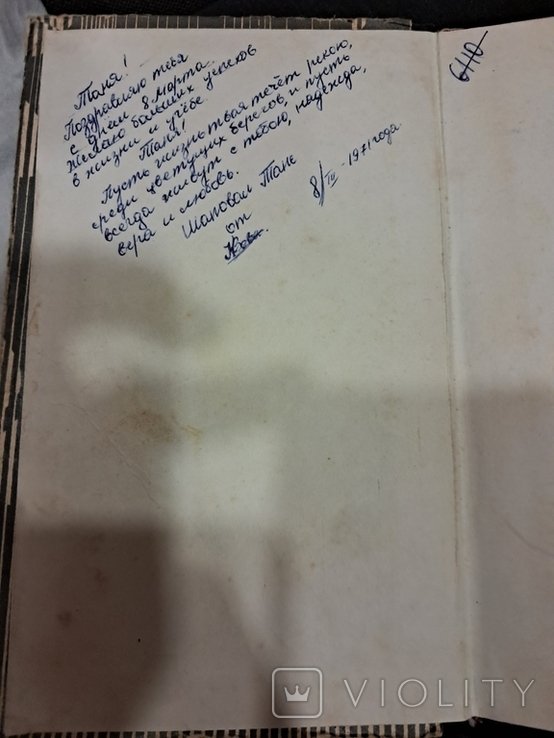 Таня!
Поздравляю тебя
с Днём 8 марта.
Желаю больших успехов
в жизни и учёбе.
Таня!
Пусть жизнь твоя течёт рекою,
среди цветущих берегов, и пусть
всегда живут с тобою, надежда,
вера и любовь.
Шаповал Тане
от
8/III-1971 года.
VIOLITY